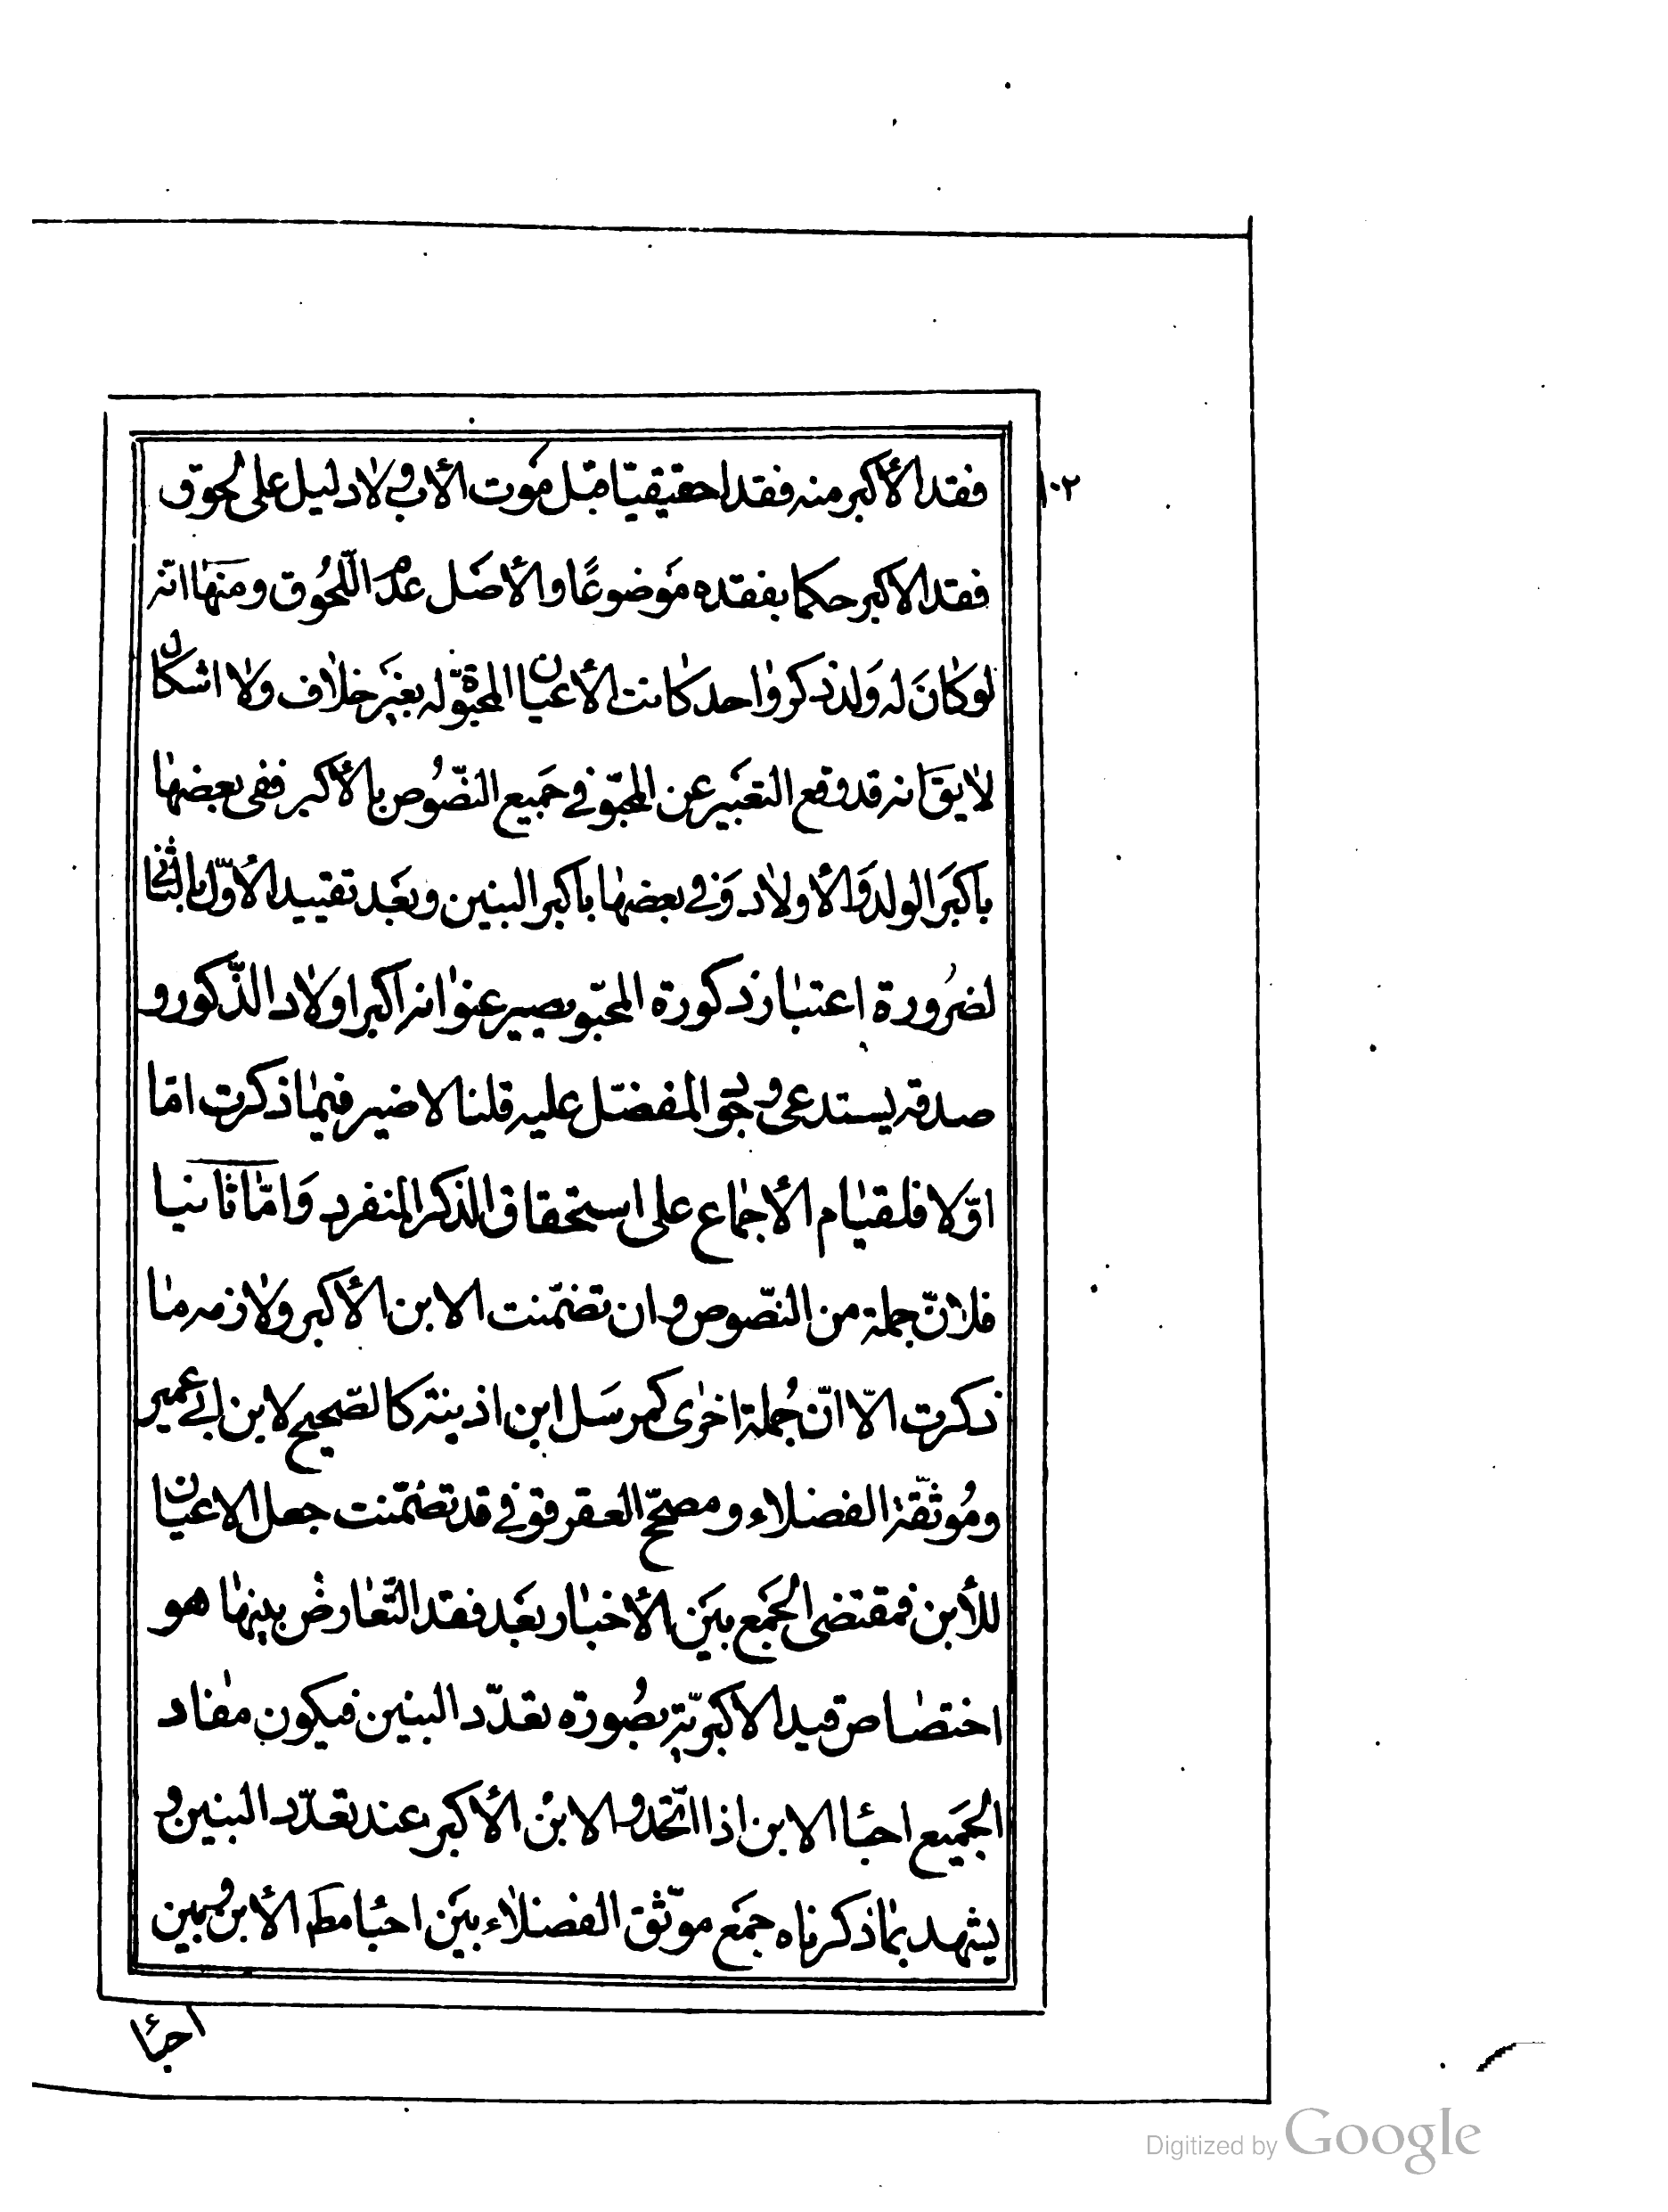 ١٠٢
فقد الأكبر منه فقدا حقيقيّا قبل مَوت الأب ولا دليل على لحوق
فقد الاكبر حكما بفقده مَوضوعًا والأصَل عدَم اللّحُوق ومَنهَا انّه
لو كانَ له وَلد ذكر واحد كانت الأعيان المحبوّة له بغيَر خلاف ولا اشكال
لا يقَ انه قد وقع التعبَير عن المحبوّ في جَميع النصّوُص بالأكبر ففى بعضها
باكبَر الولد وَالأولاد وَفي بعضها باكبر البنين وبعَد تقييد الأوّل بالثّاني
لضرُورة اعتبار ذكورة المحبّو يصير عنوانه اكبر اولاد الذّكور و
صدقه يستدعى وجود المفضّل عليه قلنا لا ضير فيما ذكرت امّا
اوّلا فلقيام الأجماع على استحقاق الذكر المنفرد وَامّا ثانيا
فلانّ جملة من النصّوص وان تضمّنت الابن الأكبر ولازمه ما
ذكرت الّا انّ جُملة اخرى كمرسَل ابن اذينة كالصّحيح لابن ابي عمير
ومُوثّقة الفضلاء ومصحّح العقرقوفي قد تضمّنت جعل الاعيان
للأبن فمقتضى الجَمع بيَن الأخبار بعَد فقد التّعارض بينها هو
اختصاص قيد الاكبريّة بصُورة تعدّد البنين فيكون مفاد
الجَميع احباء الابن اذا اتّحد والابن الأكبر عند تعدّد البنين و
يشهد بما ذكرناه جمَع موثّق الفضلاء بيَن احباء مطَ الأبن وبين
احباء
Digitized by Google